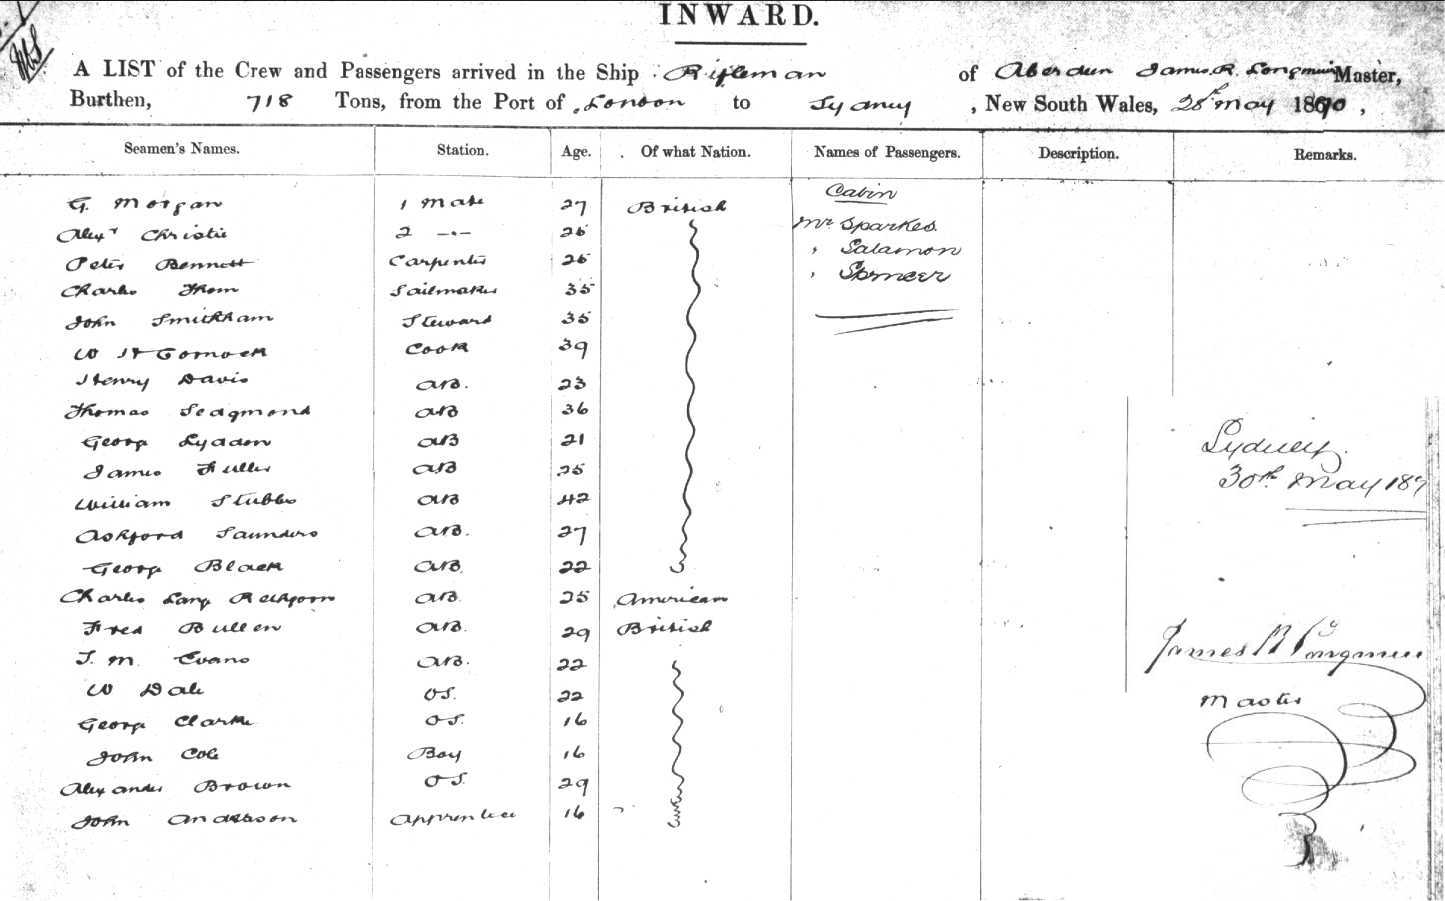 INWARD.
A LIST of the Crew and Passengers arrived in the Ship Rifleman of Aberdeen James R. Longmuir Master,
Burthen, 718 Tons, from the Port of London to Sydney, New South Wales, 28th May 1870,
Seamen's Names. Station. Age. Of what Nation. Names of Passengers. Description. Remarks.
Cabin
G. Morgan 1 Mate 27 British Mr Sparkes
Alexr Christie 2 -"- 26 " Salamon
Peter Bennett Carpenter 26 " Spencer
Charles Thom Sailmaker 35
John Smickham Steward 35
W H Cornock Cook 39
Henry Davis AB. 23
Thomas Sedgmond AB 36
George Lyddon AB 21 Sydney
James Fuller AB 25 30th May 187
William Stubbs AB 42
Ashford Saunders AB. 27
George Black AB 22
Charles Lang AB 25 American
Fred Bullen AB. 29 British James R Longmuir
T. M. Evans AB. 22
W Dale OS. 22 Master
George Clarke OS. 16
John Cole Boy 16
Alexander Brown OS. 29
John Anderson Apprentice 16